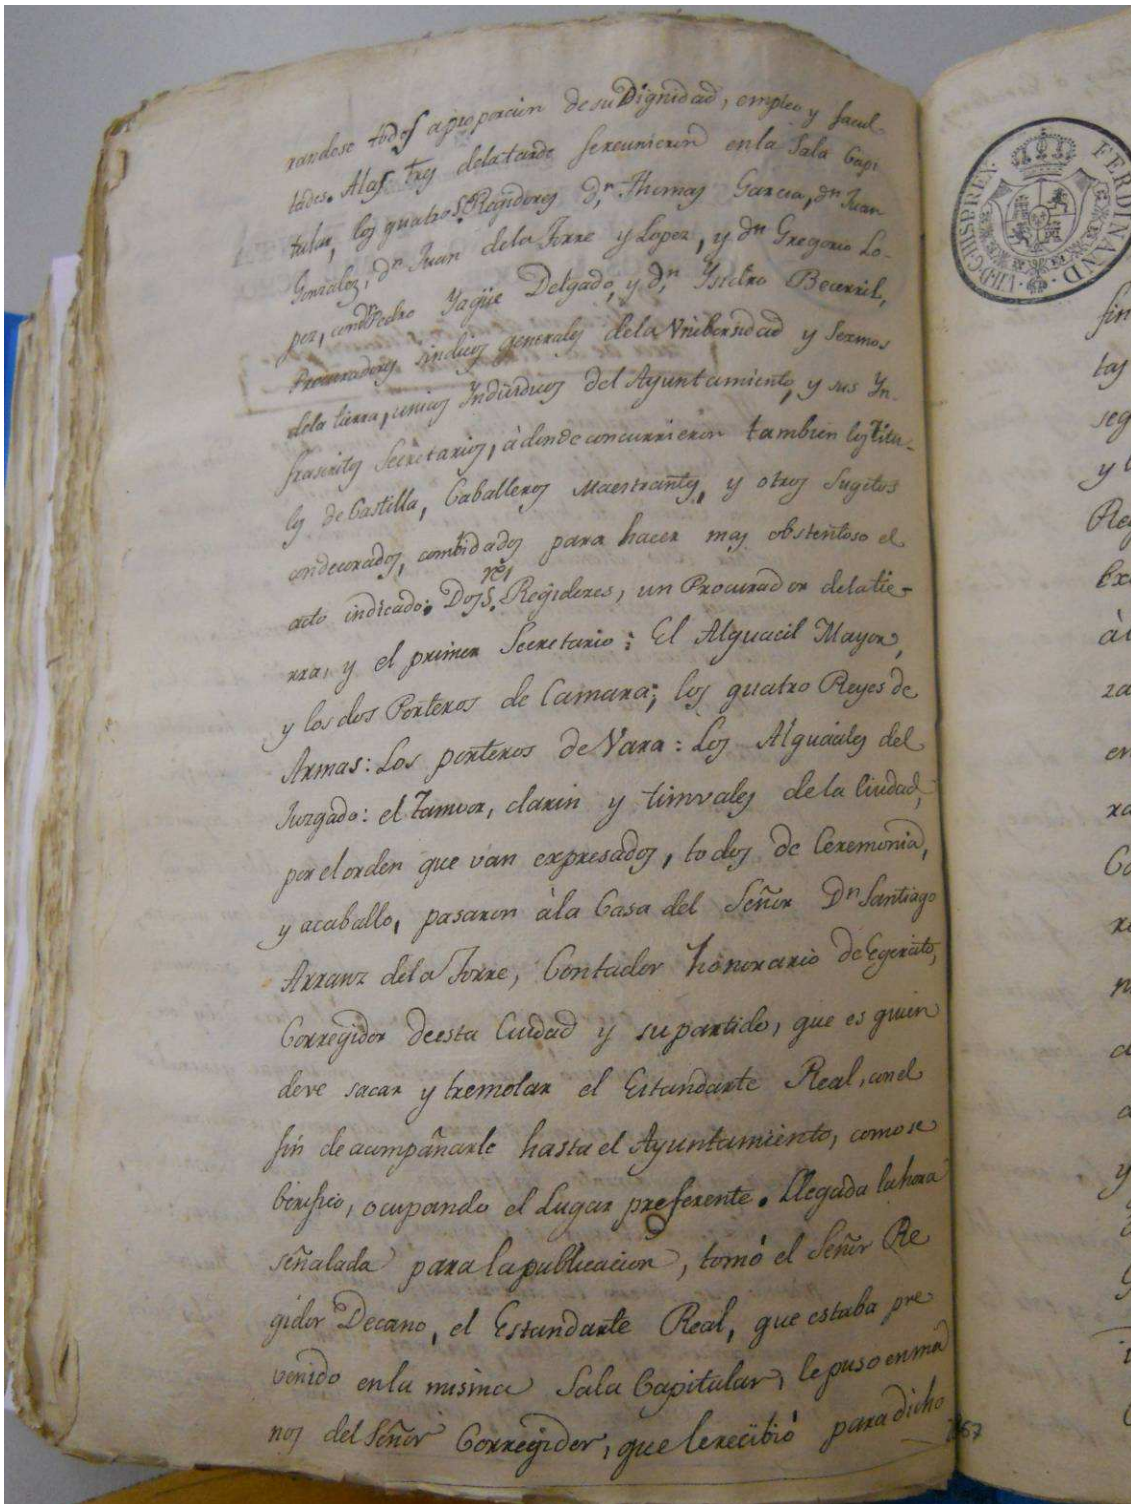 randose todos a proporcion de su Dignidad, empleo y facul-
tades. Alas tres dela tarde se reunieron en la Sala Capi
tular, los quatro S.res Regidores d.n Thomas Garcia, dn Juan
Gonzalez, dn Juan dela Torre y Lopez, y dn Gregorio Lo-
pez, con dn Pedro Yagüe Delgado, y d.n Ysidro Becerril,
Procuradores Sindicos generales dela Vnibersidad y Sexmos
dela tierra, unicos Yndividuos del Ayuntamiento, y sus Yn-
frascritos Secretarios, à donde concurrieron tambien los Titu-
los de Castilla, Caballeros Maestrantes, y otros Sugetos
condecorados, combidados para hacer mas obstentoso el
acto indicado. Dos S.res Regidores, un Procurador dela tie-
rra, y el primer Secretario: El Alguacil Mayor,
y los dos Porteros de Camara; los quatro Reyes de
Armas: Los porteros de Vara: Los Alguaciles del
Juzgado: el Tamvor, clarin y timvales de la Ciudad,
por el orden que van expresados, todos de Ceremonia,
y acaballo, pasaron àla Casa del Señor Dn Santiago
Arranz dela Torre, Contador honorario de Egercito,
Corregidor deesta Ciudad y su partido, que es quien
deve sacar y tremolar el Estandarte Real, con el
fin de acompañarle hasta el Ayuntamiento, como se
berifico, ocupando el Lugar preferente. Llegada la hora
señalada para la publicacion, tomó el Señor Re
gidor Decano, el Estandarte Real, que estaba pre
venido en la misma Sala Capitular, le puso en ma
nos del Señor Corregidor, que le recibió para dicho
FERDINAND. VII. D. G. HISP. REX.
fin
tas
seg
Re
za
en
ra